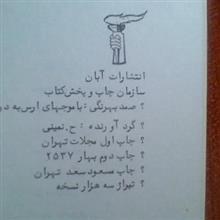 انتشارات آبان
سازمان چاپ و پخش کتاب
؟ صمد بهرنگی : با موجهای ارس به در
؟ گرد آورنده : ح. نمینی
؟ چاپ اول مجلات تهران
؟ چاپ دوم بهار ۲۵۳۷
؟ چاپ مسعود سعد تهران
؟ تیراژ سه هزار نسخه